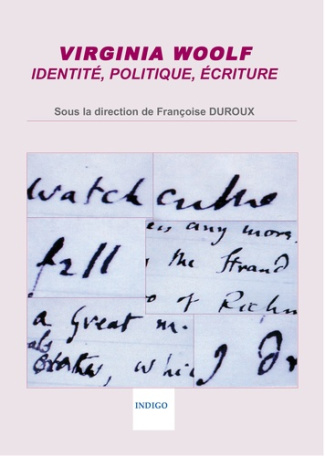 VIRGINIA WOOLF
IDENTITÉ, POLITIQUE, ÉCRITURE
Sous la direction de Françoise DUROUX
watch
any more.
fall
the Strand
of Richm
a great m.
als
whi
I
INDIGO